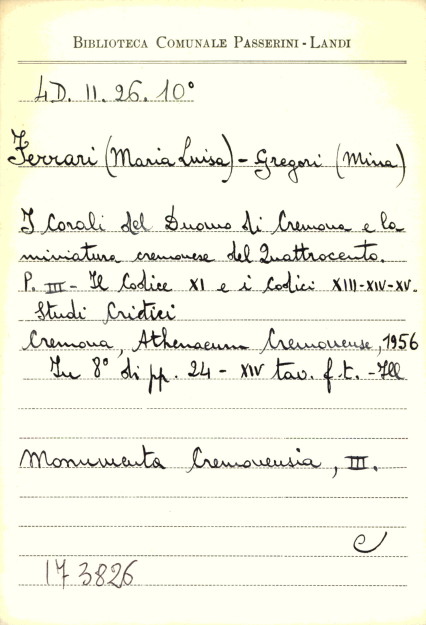 BIBLIOTECA COMUNALE PASSERINI - LANDI
4D. II. 26. 10°
Ferrari (Maria Luisa) - Gregori (Mina)
I Corali del Duomo di Cremona e la
miniatura cremonese del Quattrocento.
P. III - Il Codice XI e i Codici XIII-XIV-XV.
Studi Critici
Cremona, Athenaeum Cremonense, 1956
In 8° di pp. 24 - XIV tav. f.t. - Ill
Monumenta Cremonensia, III.
C
173826